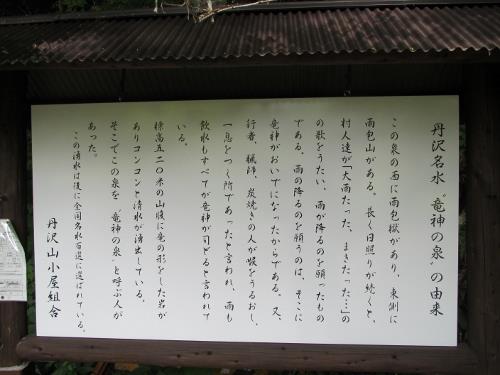 丹沢名水“竜神の泉”の由来
この泉の西に雨包嶽があり、東側に
雨包山がある。長く日照りが続くと、
村人達が「大雨たった、またきたった…」の
の歌をうたい、雨が降るのを願ったもの
である。雨の降るのを願うのは、そこに
竜神がおいでになったからである。又、
行者、猟師、炭焼きの人が喉をうるおし、
一息をつく所であったと言われ、雨も
飲水もすべてが竜神が司どると言われて
いる。
標高五二〇米の山腹に竜の形をした岩が
ありコンコンと清水が湧出している。
そこでこの泉を“竜神の泉”と呼ぶ人が
あった。
この湧水は後に全国名水百選に選ばれている。
丹沢山小屋組合